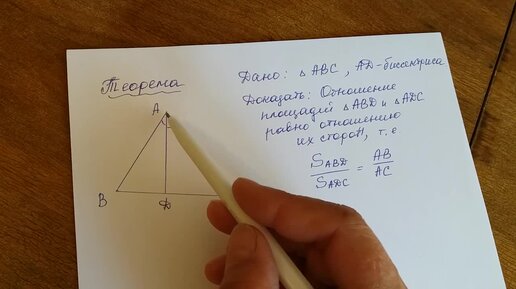 Теорема
A
B
D
Дано: △ ABC, AD-биссектриса
Доказать: Отношение
площадей △ ABD и △ ADC
равно отношению
их сторон, т.е
S ABD / S ADC = AB / AC